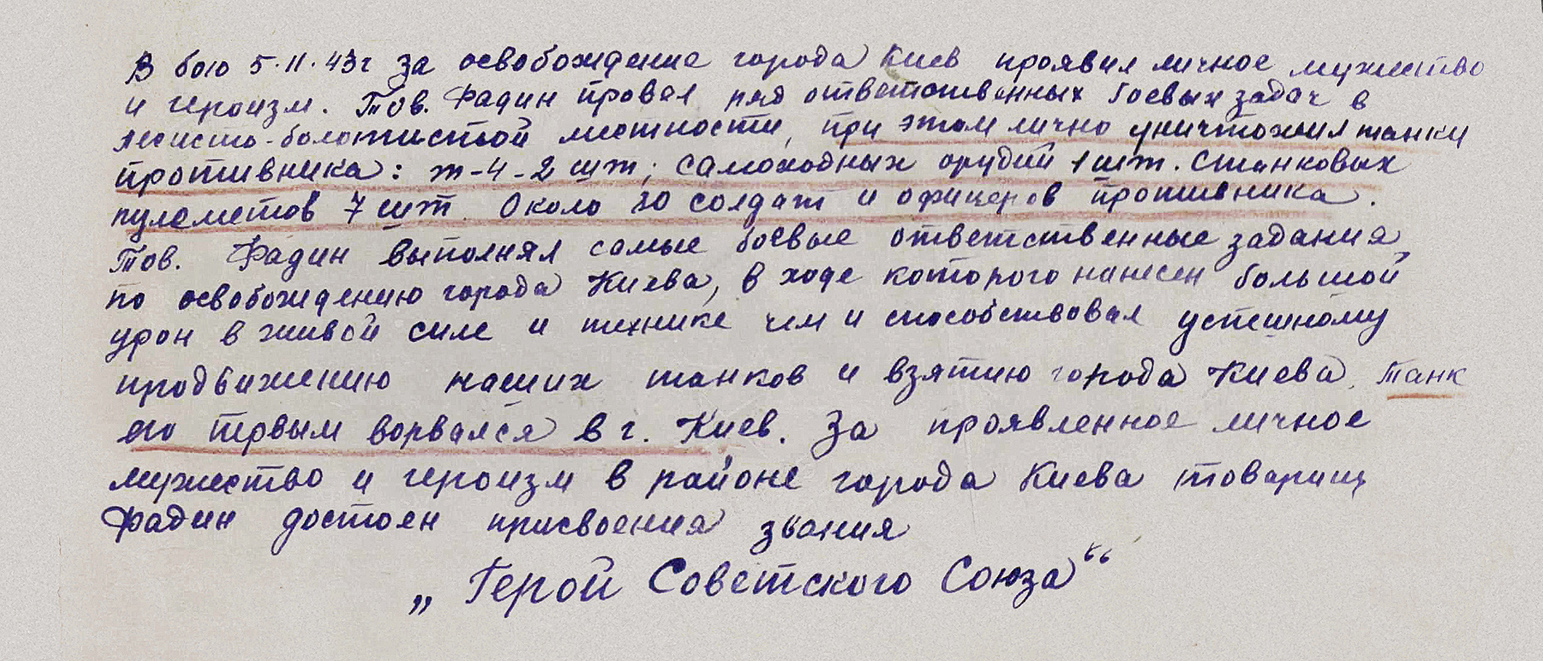 В бою 5.11.43г за освобождение города Киев проявил личное мужество
и героизм. Тов. Фадин провел ряд ответственных боевых задач в
лесисто-болотистой местности, при этом лично уничтожил танки
противника: т-4-2 шт; самоходных орудий 1 шт. станковых
пулеметов 7 шт. Около солдат и офицеров противника.
Тов. Фадин выполнял самые боевые ответственные задания
по освобождению города Киева, в ходе которого нанесен большой
урон в живой силе и технике чем и способствовал успешному
продвижению наших танков и взятию города Киева. Танк
его первым ворвался в г. Киев. За проявленное личное
мужество и героизм в районе города Киева товарищ
Фадин достоен присвоения звания
„Герой Советского Союза“